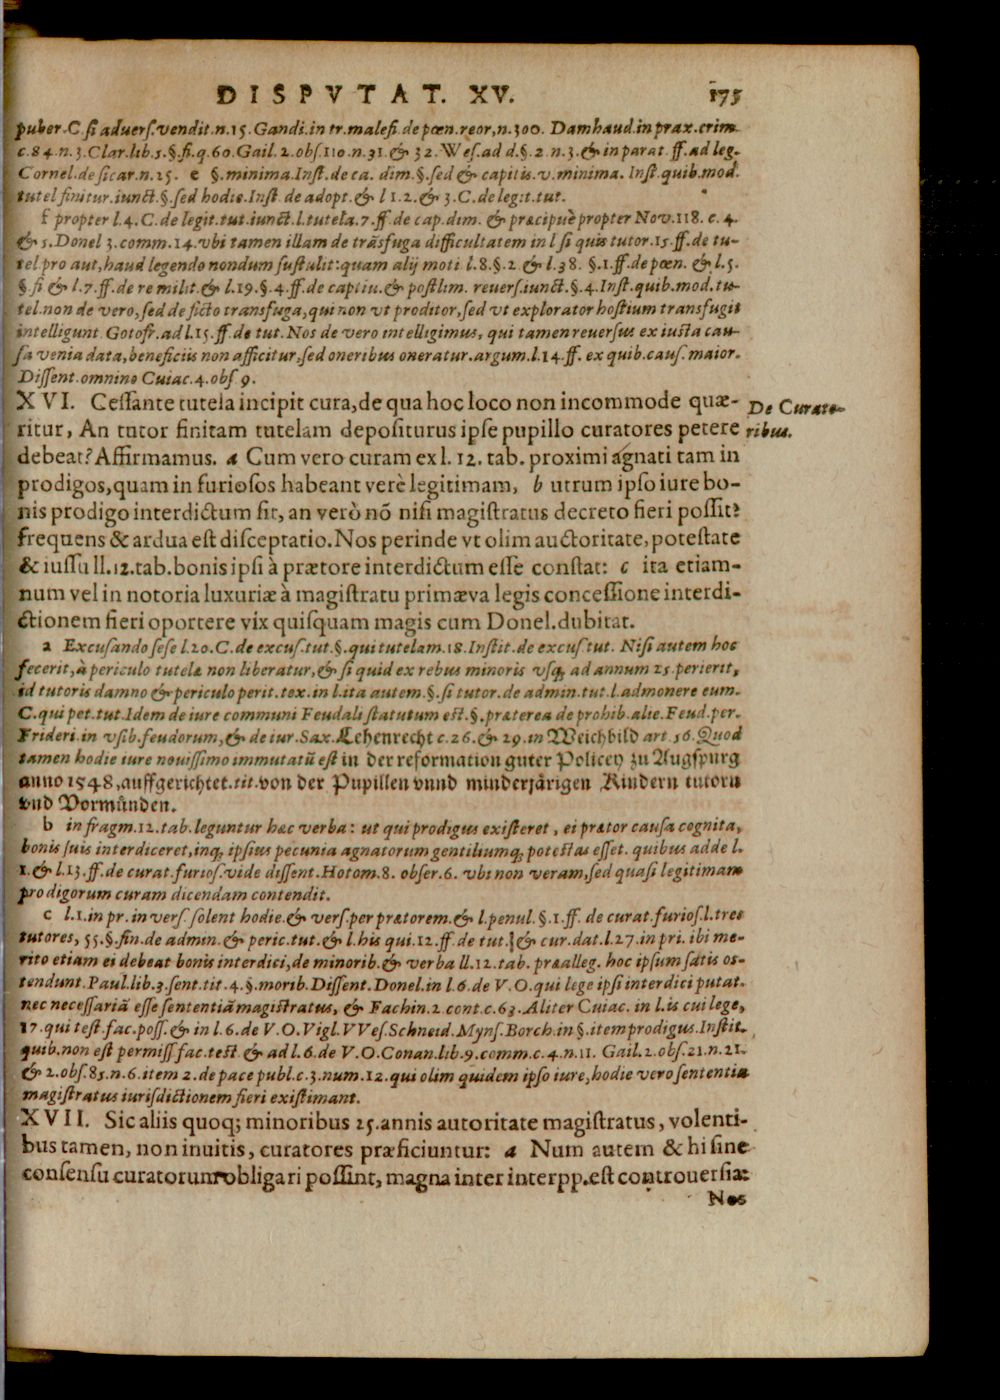 DISPVTAT. XV. 175
puber. C. ſi aduerſ. vendit. n. 15. Gandi. in tr. malefi. de pœn. reor, n. 300. Damhaud. in prax. crim.
c. 84. n. 3. Clar. lib. 5. §. fi. q. 60. Gail. 2. obſ. 110. n. 31. & 32. Weſ. ad d. §. 2. n. 3. & in parat. ff. ad leg.
Cornel. de ſicar. n. 25. e §. minima. Inſt. de ca. dim. §. ſed & capitis. v. minima. Inſt. quib. mod.
tutel finitur. iunct. §. ſed hodie. Inſt. de adopt. & l 1. 2. & 3. C. de legit. tut.
f propter l. 4. C. de legit. tut. iunct. l. tutela. 7. ff. de cap. dim. & præcipuè propter Nov. 118. c. 4.
& 5. Donel 3. comm. 14. vbi tamen illam de trāsfuga difficultatem in l ſi quis tutor. 15. ff. de tu-
tel pro aut, haud legendo nondum ſuſtulit: quam alij moti l. 8. §. 2 & l. 38. §. 1. ff. de pœn. & l. 5.
§. ſi & l. 7. ff. de re milit. & l. 19. §. 4. ff. de captiu. & poſtlim. reuerſ. iunct. §. 4. Inſt. quib. mod. tu-
tel. non de vero, ſed de ficto transfuga, qui non vt proditor, ſed vt explorator hoſtium transfugit
intelligunt. Gotofr. ad l. 15. ff. de tut. Nos de vero intelligimus, qui tamen reuerſus ex iuſta cau-
ſa venia data, beneficiis non afficitur, ſed oneribus oneratur. argum. l. 14. ff. ex quib. cauſ. maior.
Diſſent. omnino Cuiac. 4. obſ 9.
XVI. Ceſſante tutela incipit cura, de qua hoc loco non incommode quæ- De Curato-
ritur, An tutor finitam tutelam depoſiturus ipſe pupillo curatores petere ribus.
debeat? Affirmamus. a Cum vero curam ex l. 12. tab. proximi agnati tam in
prodigos, quam in furioſos habeant verè legitimam, b utrum ipſo iure bo-
nis prodigo interdictum ſit, an verò nō niſi magiſtratus decreto fieri poſſit?
frequens & ardua eſt diſceptatio. Nos perinde vt olim auctoritate, poteſtate
& iuſſu ll. 12. tab. bonis ipſi à prætore interdictum eſſe conſtat: c ita etiam-
num vel in notoria luxuriæ à magiſtratu primæva legis conceſſione interdi-
ctionem fieri oportere vix quiſquam magis cum Donel. dubitat.
a Excuſando ſeſe l. 20. C. de excuſ. tut. §. qui tutelam. 18. Inſtit. de excuſ. tut. Niſi autem hoc
fecerit, à periculo tutelæ non liberatur, & ſi quid ex rebus minoris vſq; ad annum 25. perierit,
id tutoris damno & periculo perit. tex. in l. ita autem. §. ſi tutor. de admin. tut. l. admonere eum.
C. qui pet. tut. Idem de iure communi Feudali ſtatutum eſt. §. præterea de prohib. alie. Feud. per.
Frideri. in vſib. feudorum, & de iur. Sax. Lehenrecht c. 26. & 29. in Weichbild art. 56. Quod
tamen hodie iure nouiſſimo immutatū eſt in der reformation guter Policey zu Augſpurg
anno 1548, auffgerichtet. tit. von der Pupillen vnnd minderjårigen Kindern tutorn
vnd Vormůnden.
b in fragm. 12. tab. leguntur hæc verba: ut qui prodigus exiſteret, ei prætor cauſa cognita,
bonis ſuis interdiceret, inq; ipſius pecunia agnatorum gentiliumq; poteſtas eſſet. quibus adde l.
1. & l. 13. ff. de curat. furioſ. vide diſſent. Hotom. 8. obſer. 6. vbi non veram, ſed quaſi legitimam
prodigorum curam dicendam contendit.
c l. 1. in pr. in verſ. ſolent hodie. & verſ. per prætorem. & l. penul. §. 1. ff. de curat. furioſ. l. tres
tutores, 55. §. fin. de admin. & peric. tut. & l. his qui. 12. ff. de tut. & cur. dat. l. 27. in pri. ibi me-
rito etiam ei debeat bonis interdici, de minorib. & verba ll. 12. tab. præalleg. hoc ipſum ſatis os-
tendunt. Paul. lib. 3. ſent. tit. 4. §. morib. Diſſent. Donel. in l. 6. de V. O. qui lege ipſi interdici putat.
nec neceſſariā eſſe ſententiā magiſtratus, & Fachin. 2. cont. c. 63. Aliter Cuiac. in l. is cui lege,
17. qui teſt. fac. poſſ. & in l. 6. de V. O. Vigl. VVeſ. Schneid. Mynſ. Borch. in §. item prodigus. Inſtit.
quib. non eſt permiſſ fac. teſt & ad l. 6. de V. O. Conan. lib. 9. comm. c. 4. n. 11. Gail. 2. obſ. 21. n. 21.
& 2. obſ. 85. n. 6. item 2. de pace publ. c. 3. num. 12. qui olim quidem ipſo iure, hodie vero ſententia
magiſtratus iurisdictionem fieri exiſtimant.
XVII. Sic aliis quoq; minoribus 25. annis autoritate magiſtratus, volenti-
bus tamen, non invitis, curatores præficiuntur: a Num autem & hi ſine
conſenſu curatorum obligari poſſint, magna inter interpp. eſt controuerſia:
Nos